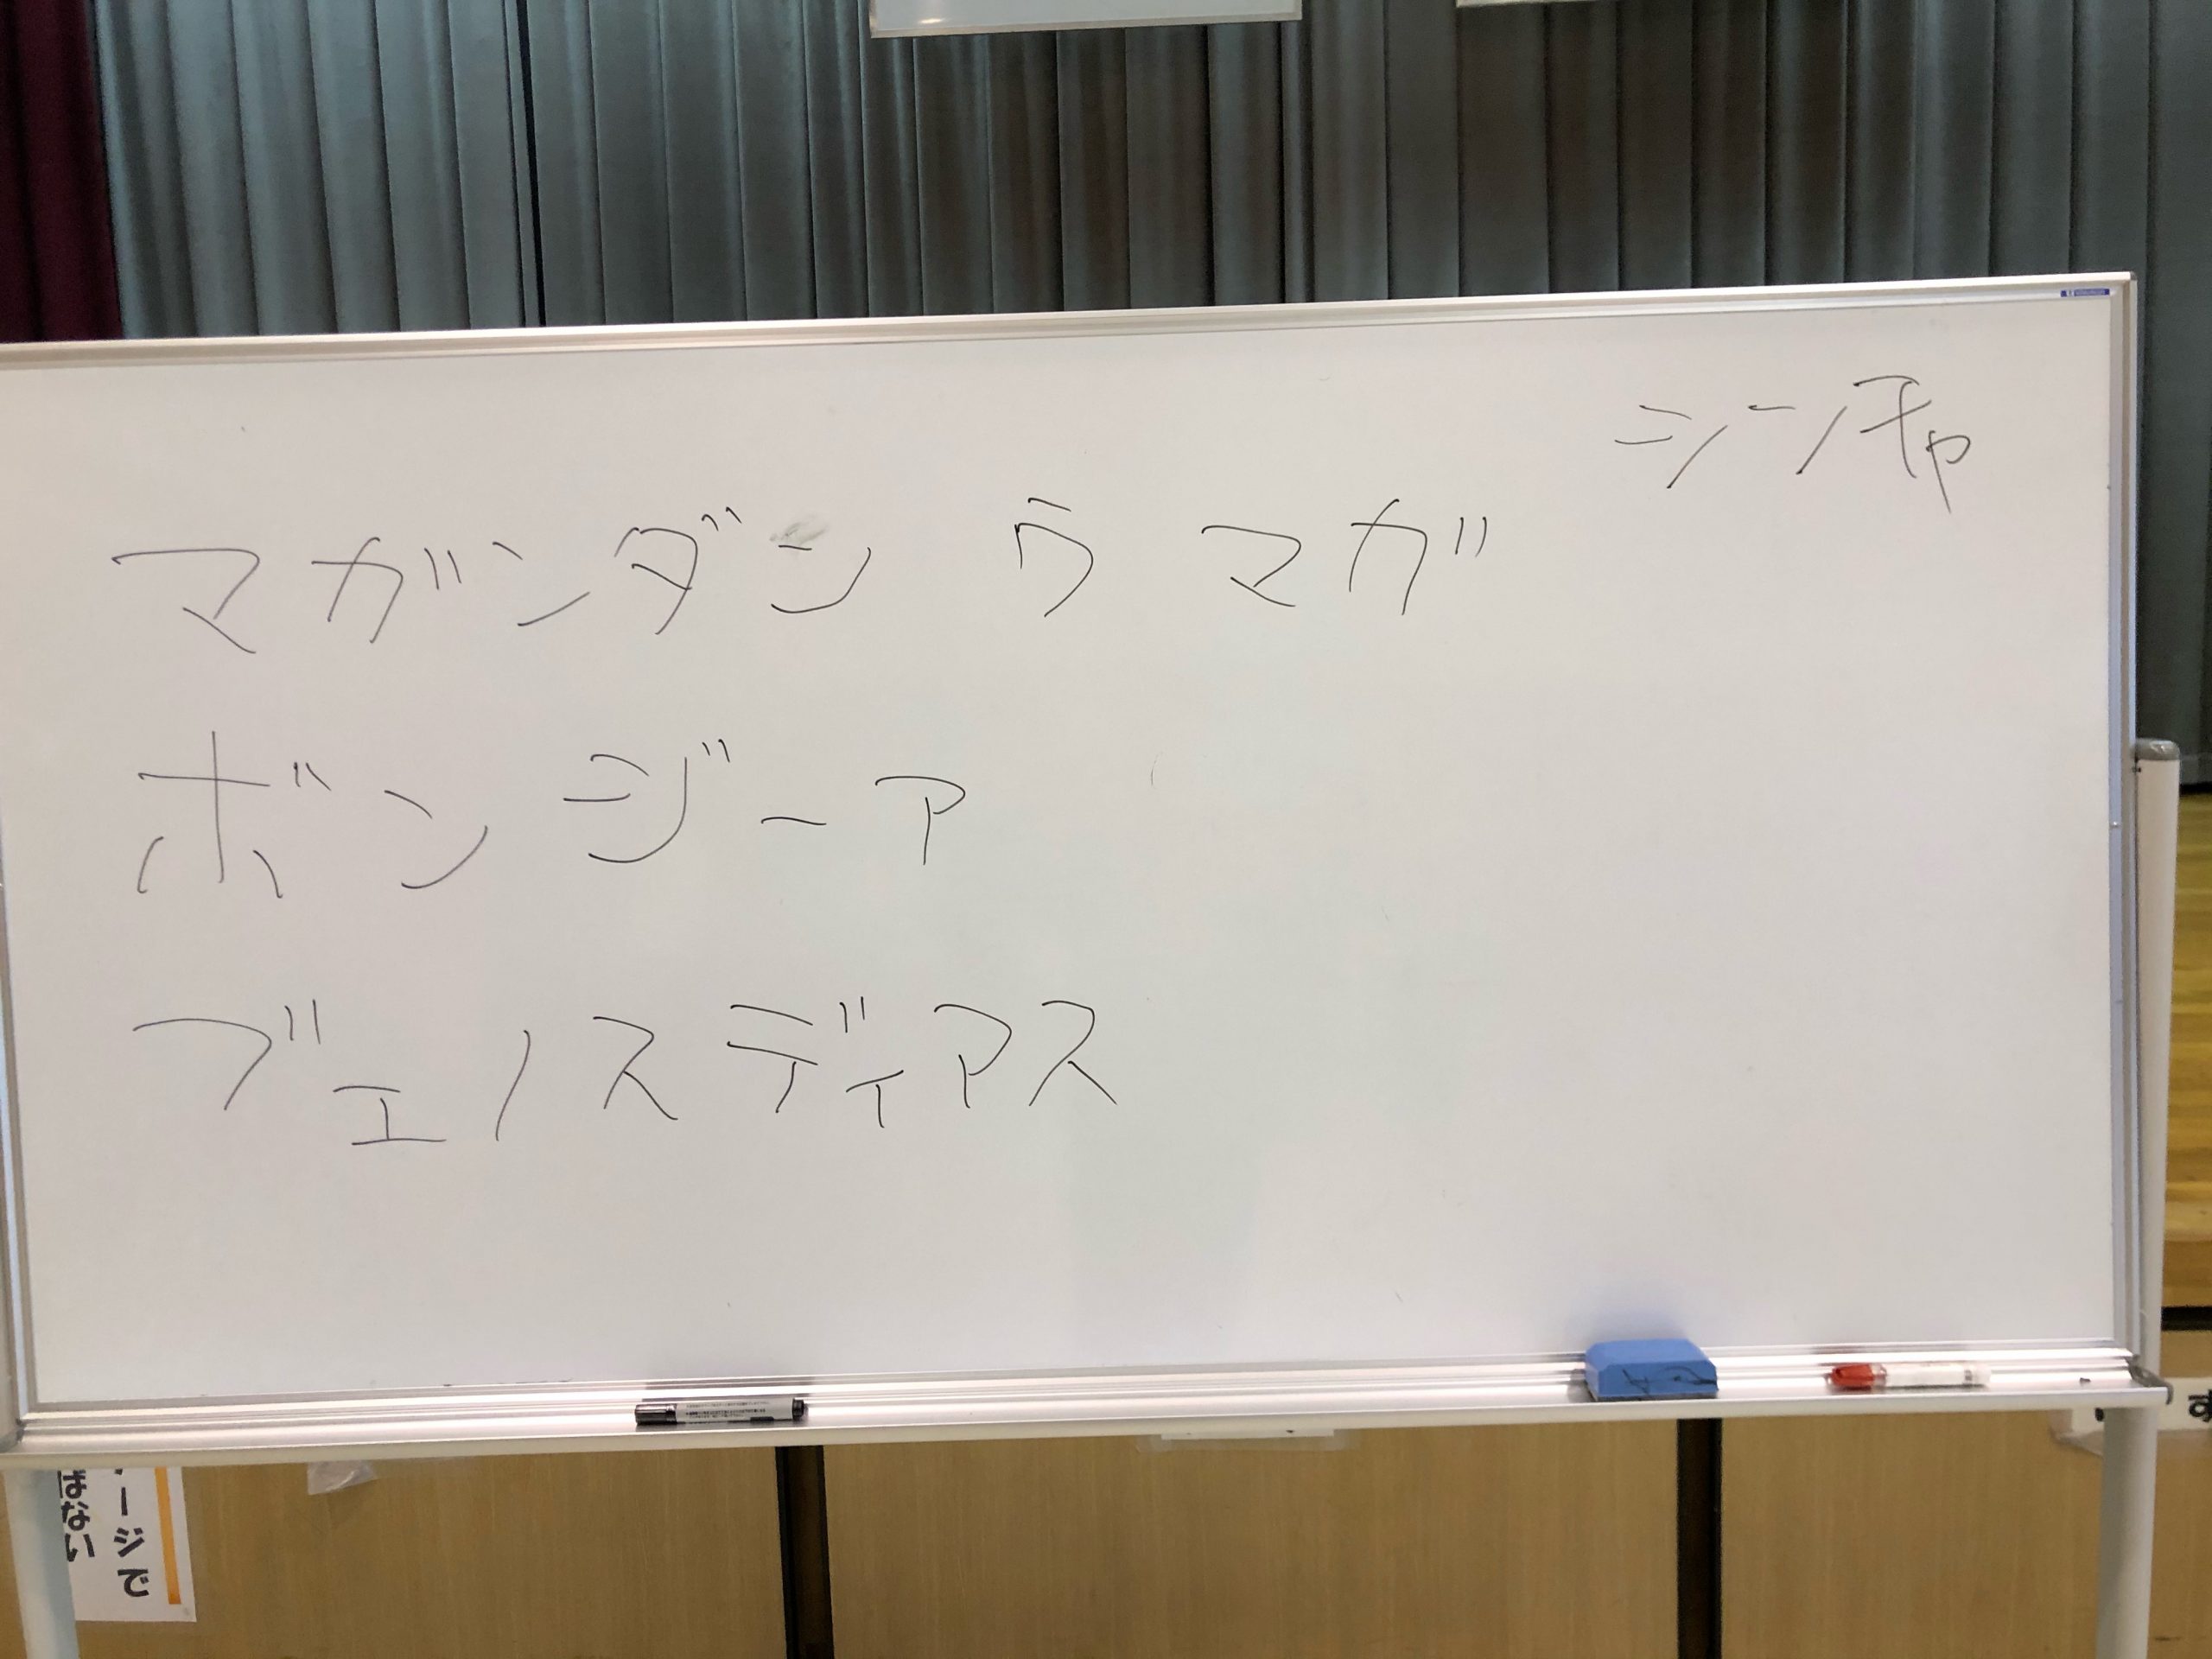 シンチャ
マガンダン ウ マガ
ボンジーア
ブエノスディアス
ージで
はない
す